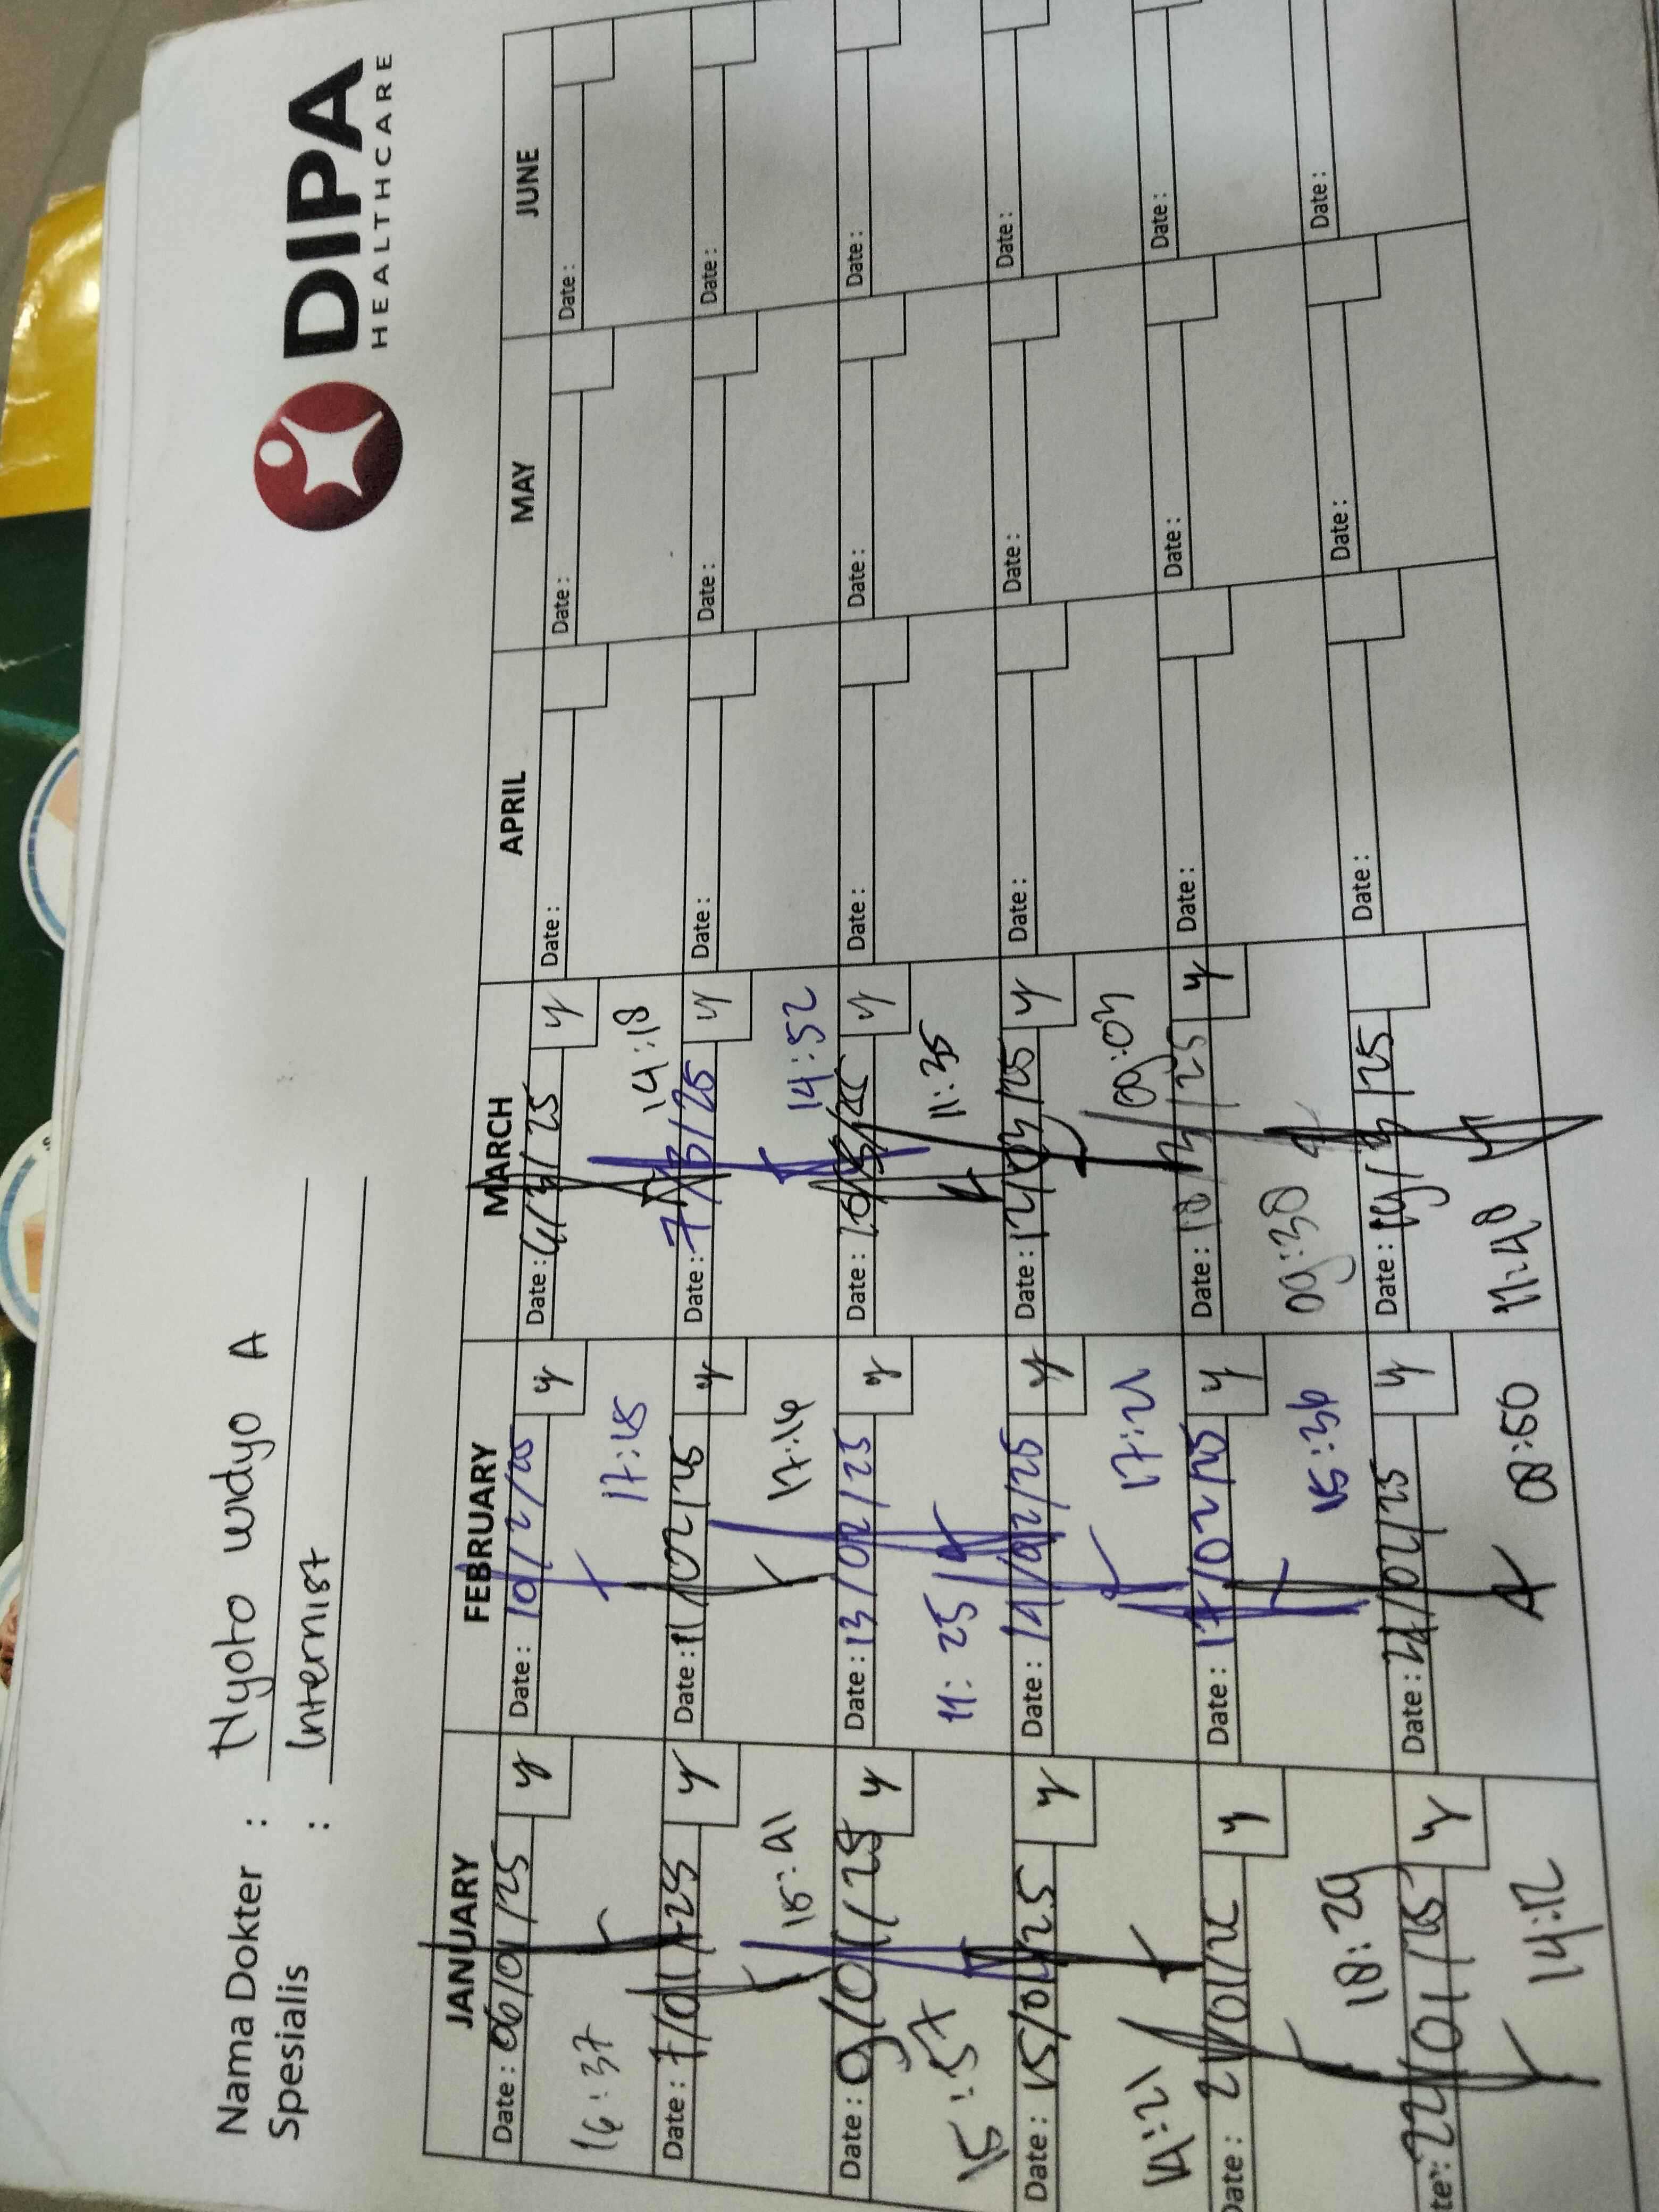 DIPA
HEALTHCARE
Nama Dokter : Nyoto widyo A
Spesialis : Internist
JANUARY FEBRUARY MARCH APRIL MAY JUNE
Date : 06/01/25 y Date : 10/2/25 y Date : 4/3/25 y Date : Date : Date :
16:37 17:15 14:18
Date : 7/01/25 y Date : 11/02/25 y Date : 7/3/25 y Date : Date : Date :
15:41 17:16 14:52
Date : 09/01/25 y Date : 13/02/25 y Date : 10/3/25 y Date : Date : Date :
15:57 11:25 11:35
Date : 15/01/25 y Date : 14/02/25 y Date : 12/03/25 y Date : Date : Date :
14:21 17:21 09:03
Date : 21/01/25 y Date : 17/02/25 y Date : 18/3/25 y Date : Date : Date :
18:29 15:36 09:38
22/01/25 y Date : /02/25 y Date : 19/3/25 Date : Date : Date :
14:12 08:50 11:48